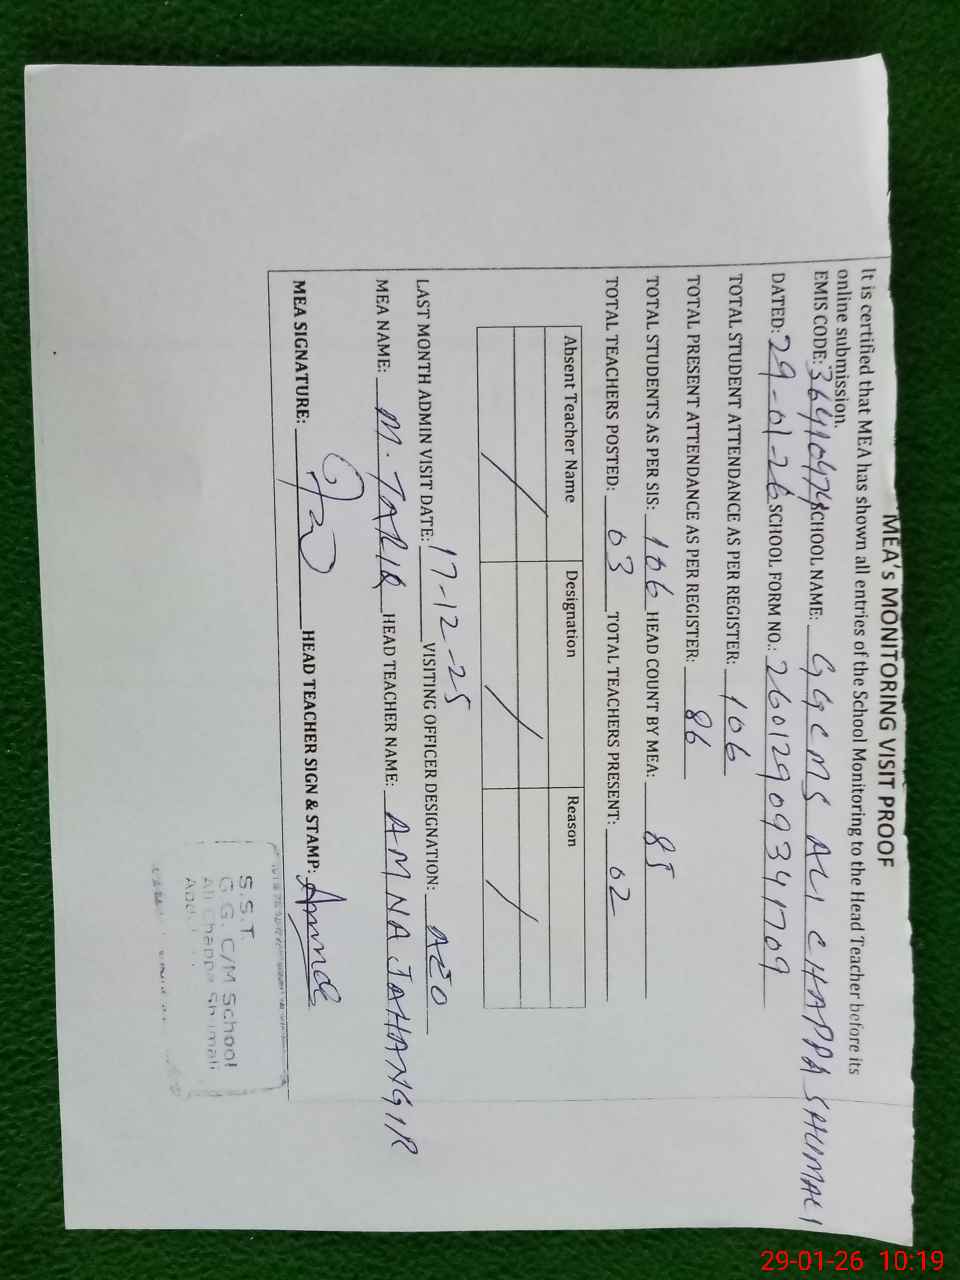 MEA's MONITORING VISIT PROOF
It is certified that MEA has shown all entries of the School Monitoring to the Head Teacher before its
online submission.
EMIS CODE: 36410474 SCHOOL NAME: GGCMS ALI CHAPPA SHUMALI
DATED: 29-01-26 SCHOOL FORM NO.: 26012909341709
TOTAL STUDENT ATTENDANCE AS PER REGISTER: 106
TOTAL PRESENT ATTENDANCE AS PER REGISTER: 86
TOTAL STUDENTS AS PER SIS: 106 HEAD COUNT BY MEA: 85
TOTAL TEACHERS POSTED: 03 TOTAL TEACHERS PRESENT: 02
Absent Teacher Name Designation Reason
LAST MONTH ADMIN VISIT DATE: 17-12-25 VISITING OFFICER DESIGNATION: AEO
MEA NAME: M. TARIQ HEAD TEACHER NAME: AMNA JAHANGIR
MEA SIGNATURE: HEAD TEACHER SIGN & STAMP: Amna
S.S.T.
G.G. C/M School
Ali Chappa Shumali
29-01-26 10:19